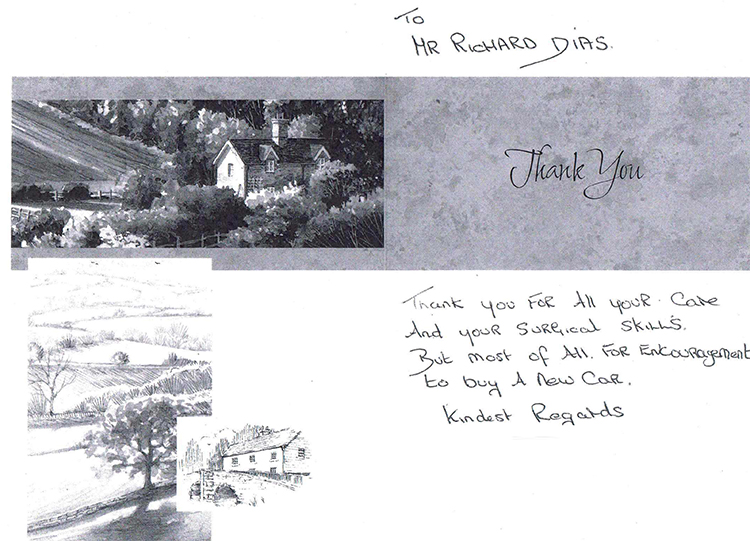 To
Mr Richard Dias.
Thank You
Thank you for All your Care
And your Surgical Skills.
But most of All. For Encouragement
to buy A New Car.
Kindest Regards